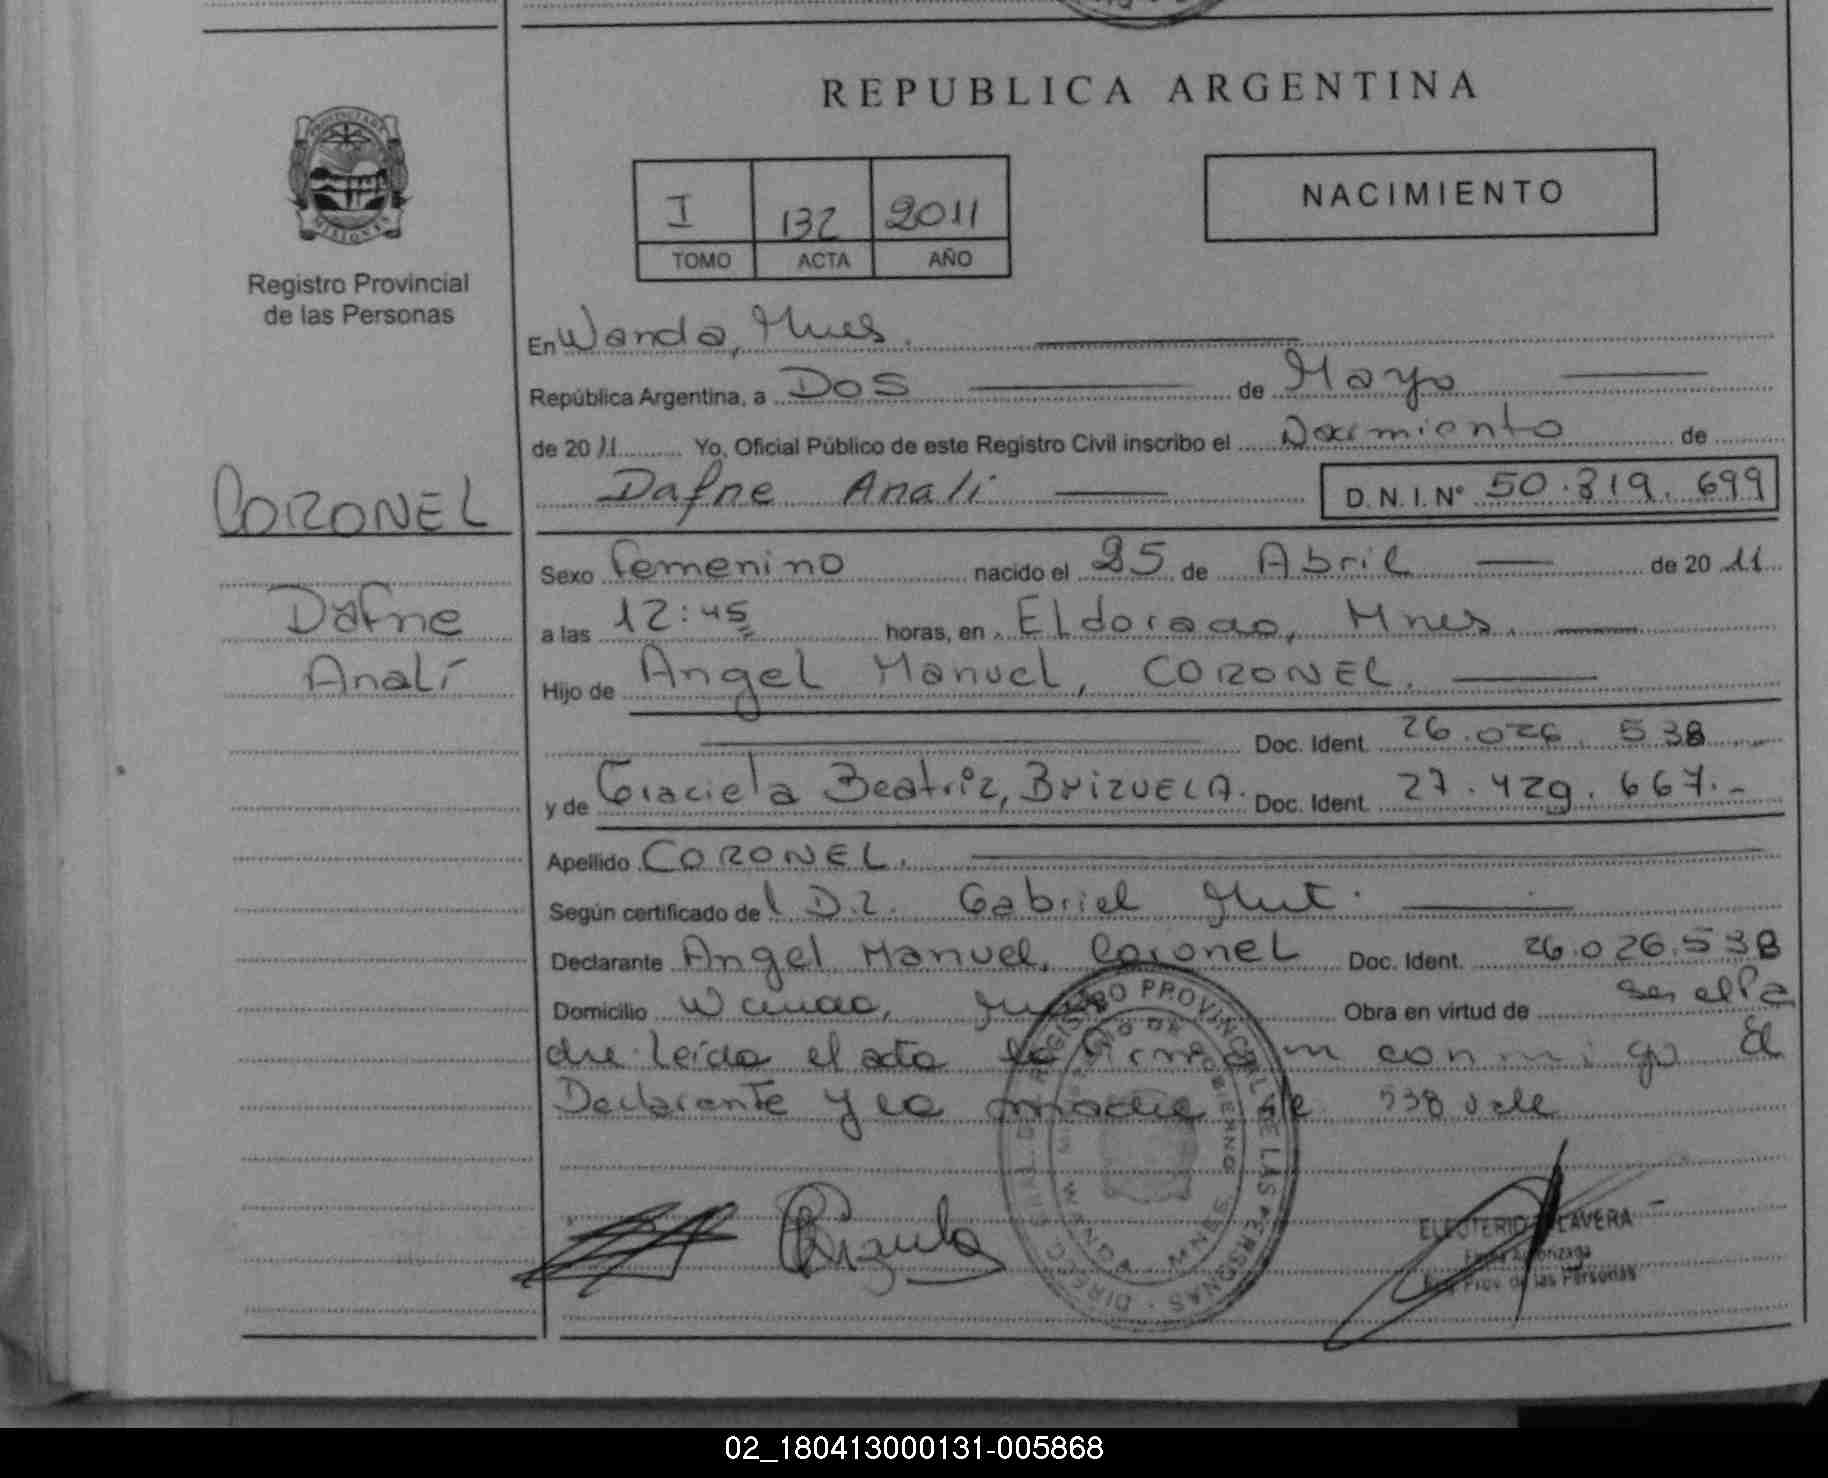 REPUBLICA ARGENTINA
PROVINCIA DE MISIONES
Registro Provincial
de las Personas
I 132 2011
TOMO ACTA AÑO
NACIMIENTO
En Wanda, Mnes.
República Argentina, a Dos de Mayo
de 2011 Yo, Oficial Público de este Registro Civil inscribo el Nacimiento de
Dafne Analí D.N.I. Nº 50.819.699
CORONEL
Dafne
Analí
Sexo femenino nacido el 25 de Abril de 2011
a las 12:45 horas, en Eldorado, Mnes.
Hijo de Angel Manuel, CORONEL.
Doc. Ident. 26.026.538
y de Graciela Beatriz, BRIZUELA. Doc. Ident. 27.429.667.-
Apellido CORONEL.
Según certificado del Dr. Gabriel
Declarante Angel Manuel, Coronel Doc. Ident. 26.026.538
Domicilio Wanda, Obra en virtud de ser el Pa
dre. Leída el acta la firman conmigo El
Declarante y la madre 538 vale
REGISTRO PROVINCIAL DE LAS PERSONAS
WANDA MNES
ELEUTERIO TALAVERA
Firma Autorizada
Reg. Prov. de las Personas
02_180413000131-005868